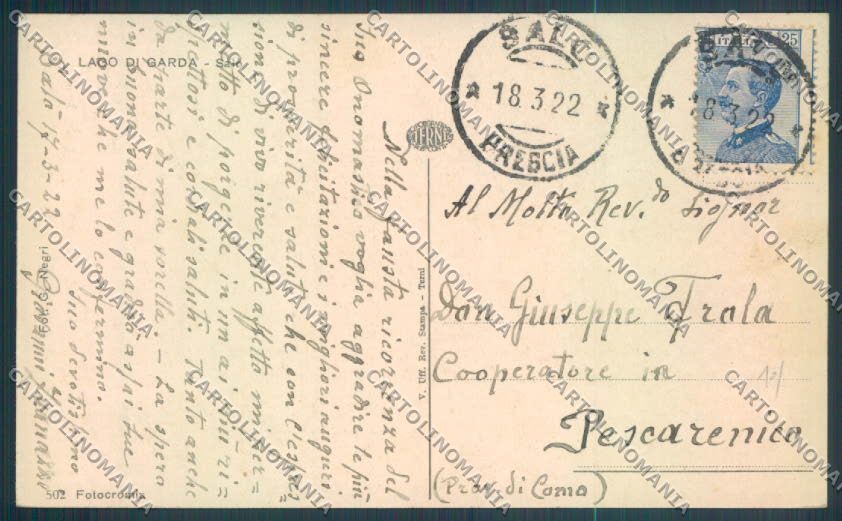 LAGO DI GARDA - Salò
Nella fausta ricorrenza del
Suo Onomastico voglia aggradire le più
sincere felicitazioni e i migliori auguri
di prosperità e salute che con l'espres=
sione di vivo riverente affetto mi per=
metto di porgerle in un ai più ri=
spettosi e cordiali saluti. Tanto anche
da parte di mia sorella. - La spero
in buona salute e gradirò assai sue
nuove che me lo confermino.
Suo devotissimo
Giovanni
Salò 17-3-22
Ediz. G. Negri
502 Fotocromia
V. Uff. Rev. Stampa - Terni
TERNI
SALÒ
18.3.22
BRESCIA
SALÒ
18.3.22
25
Al Molto Rev.do Signor
Don Giuseppe Frola
Cooperatore in
Pescarenico
(Prov. di Como)
CARTOLINOMANIA